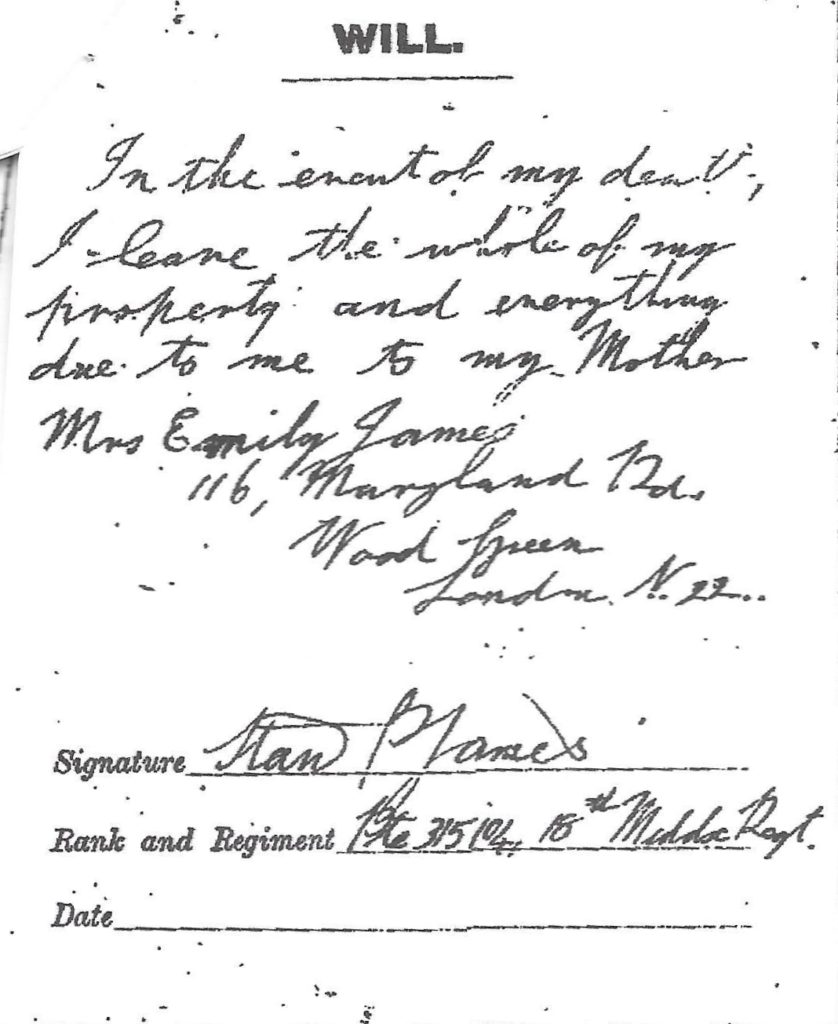 WILL.
In the event of my death,
I leave the whole of my
property and everything
due to me to my Mother
Mrs Emily James
116, Maryland Rd.
Wood Green
London. N. 22..
Signature Stan P James
Rank and Regiment Pte 315104, 18th Middx Regt.
Date